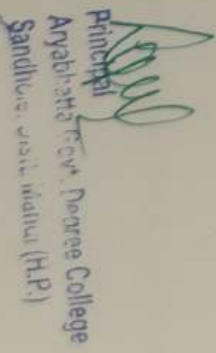 Principal
Aryabhatta Govt. Degree College
Sandhole, (H.P.)